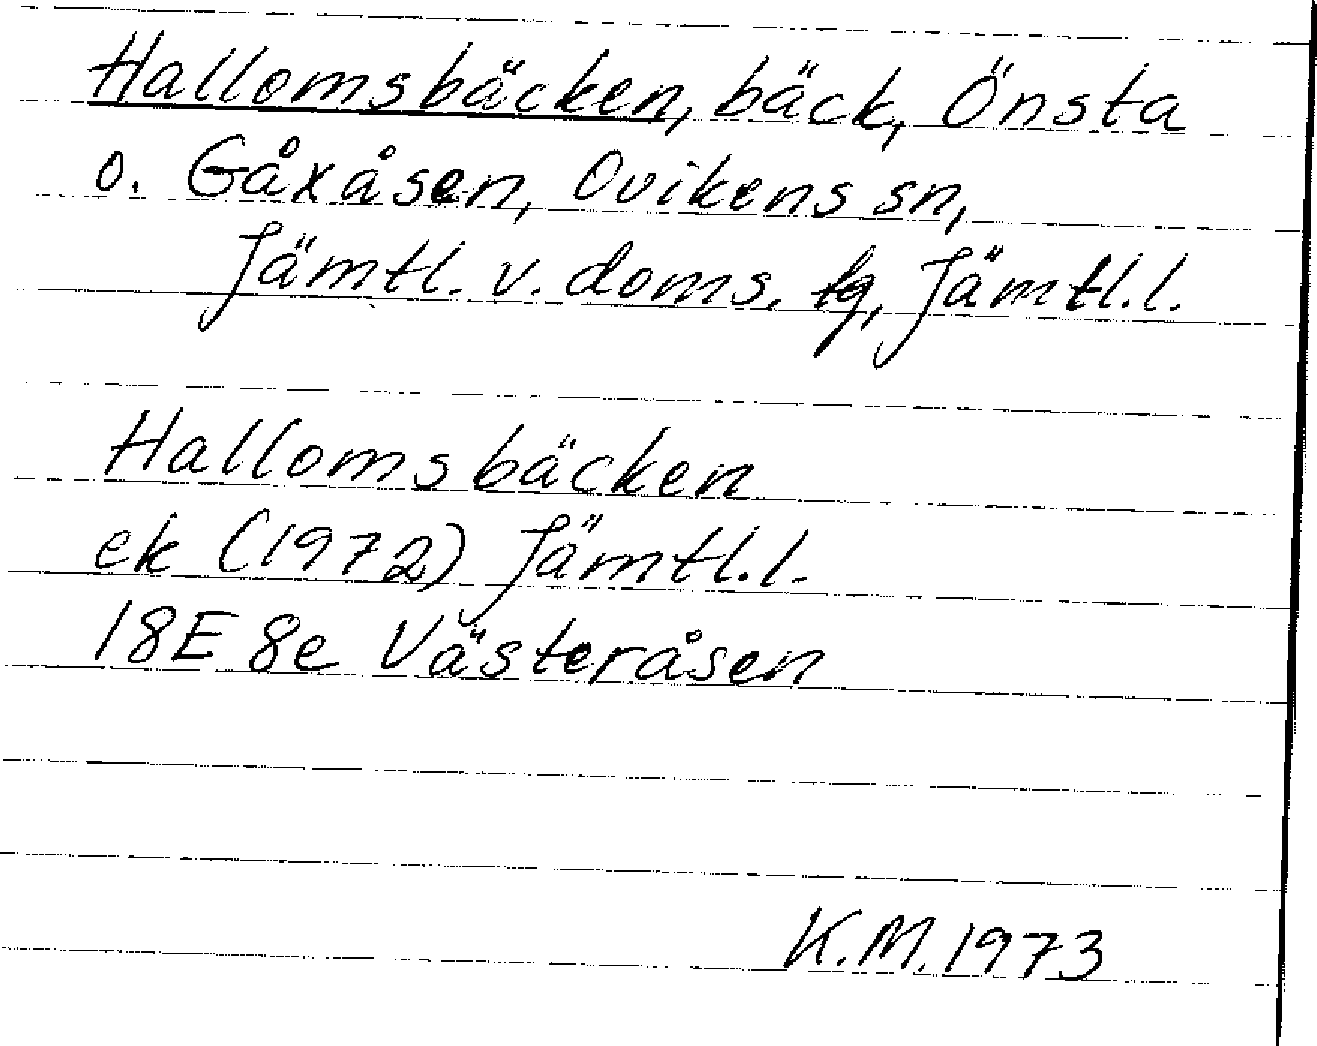 Hallomsbäcken, bäck, Önsta
o. Gåxåsen, Ovikens sn,
Jämtl. v. doms. tg, Jämtl.l.
Hallomsbäcken
ek (1972) Jämtl.l.
18E 8e Västeråsen
K.M. 1973